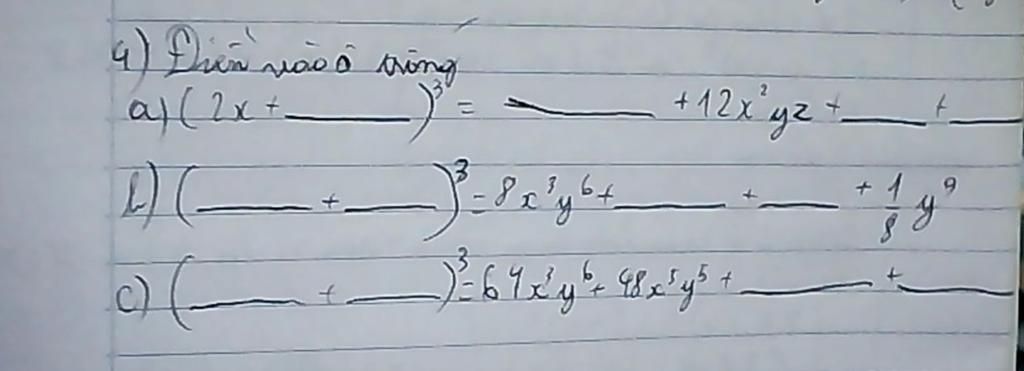 4) Điền vào ô trống
a) (2x + ____)³ = ____ + 12x²yz + ____ + ____
b) (____ + ____)³ = 8x³y⁶ + ____ + ____ + 1/8 y⁹
c) (____ + ____)³ = 64x³y⁶ + 48x³y⁵ + ____ + ____